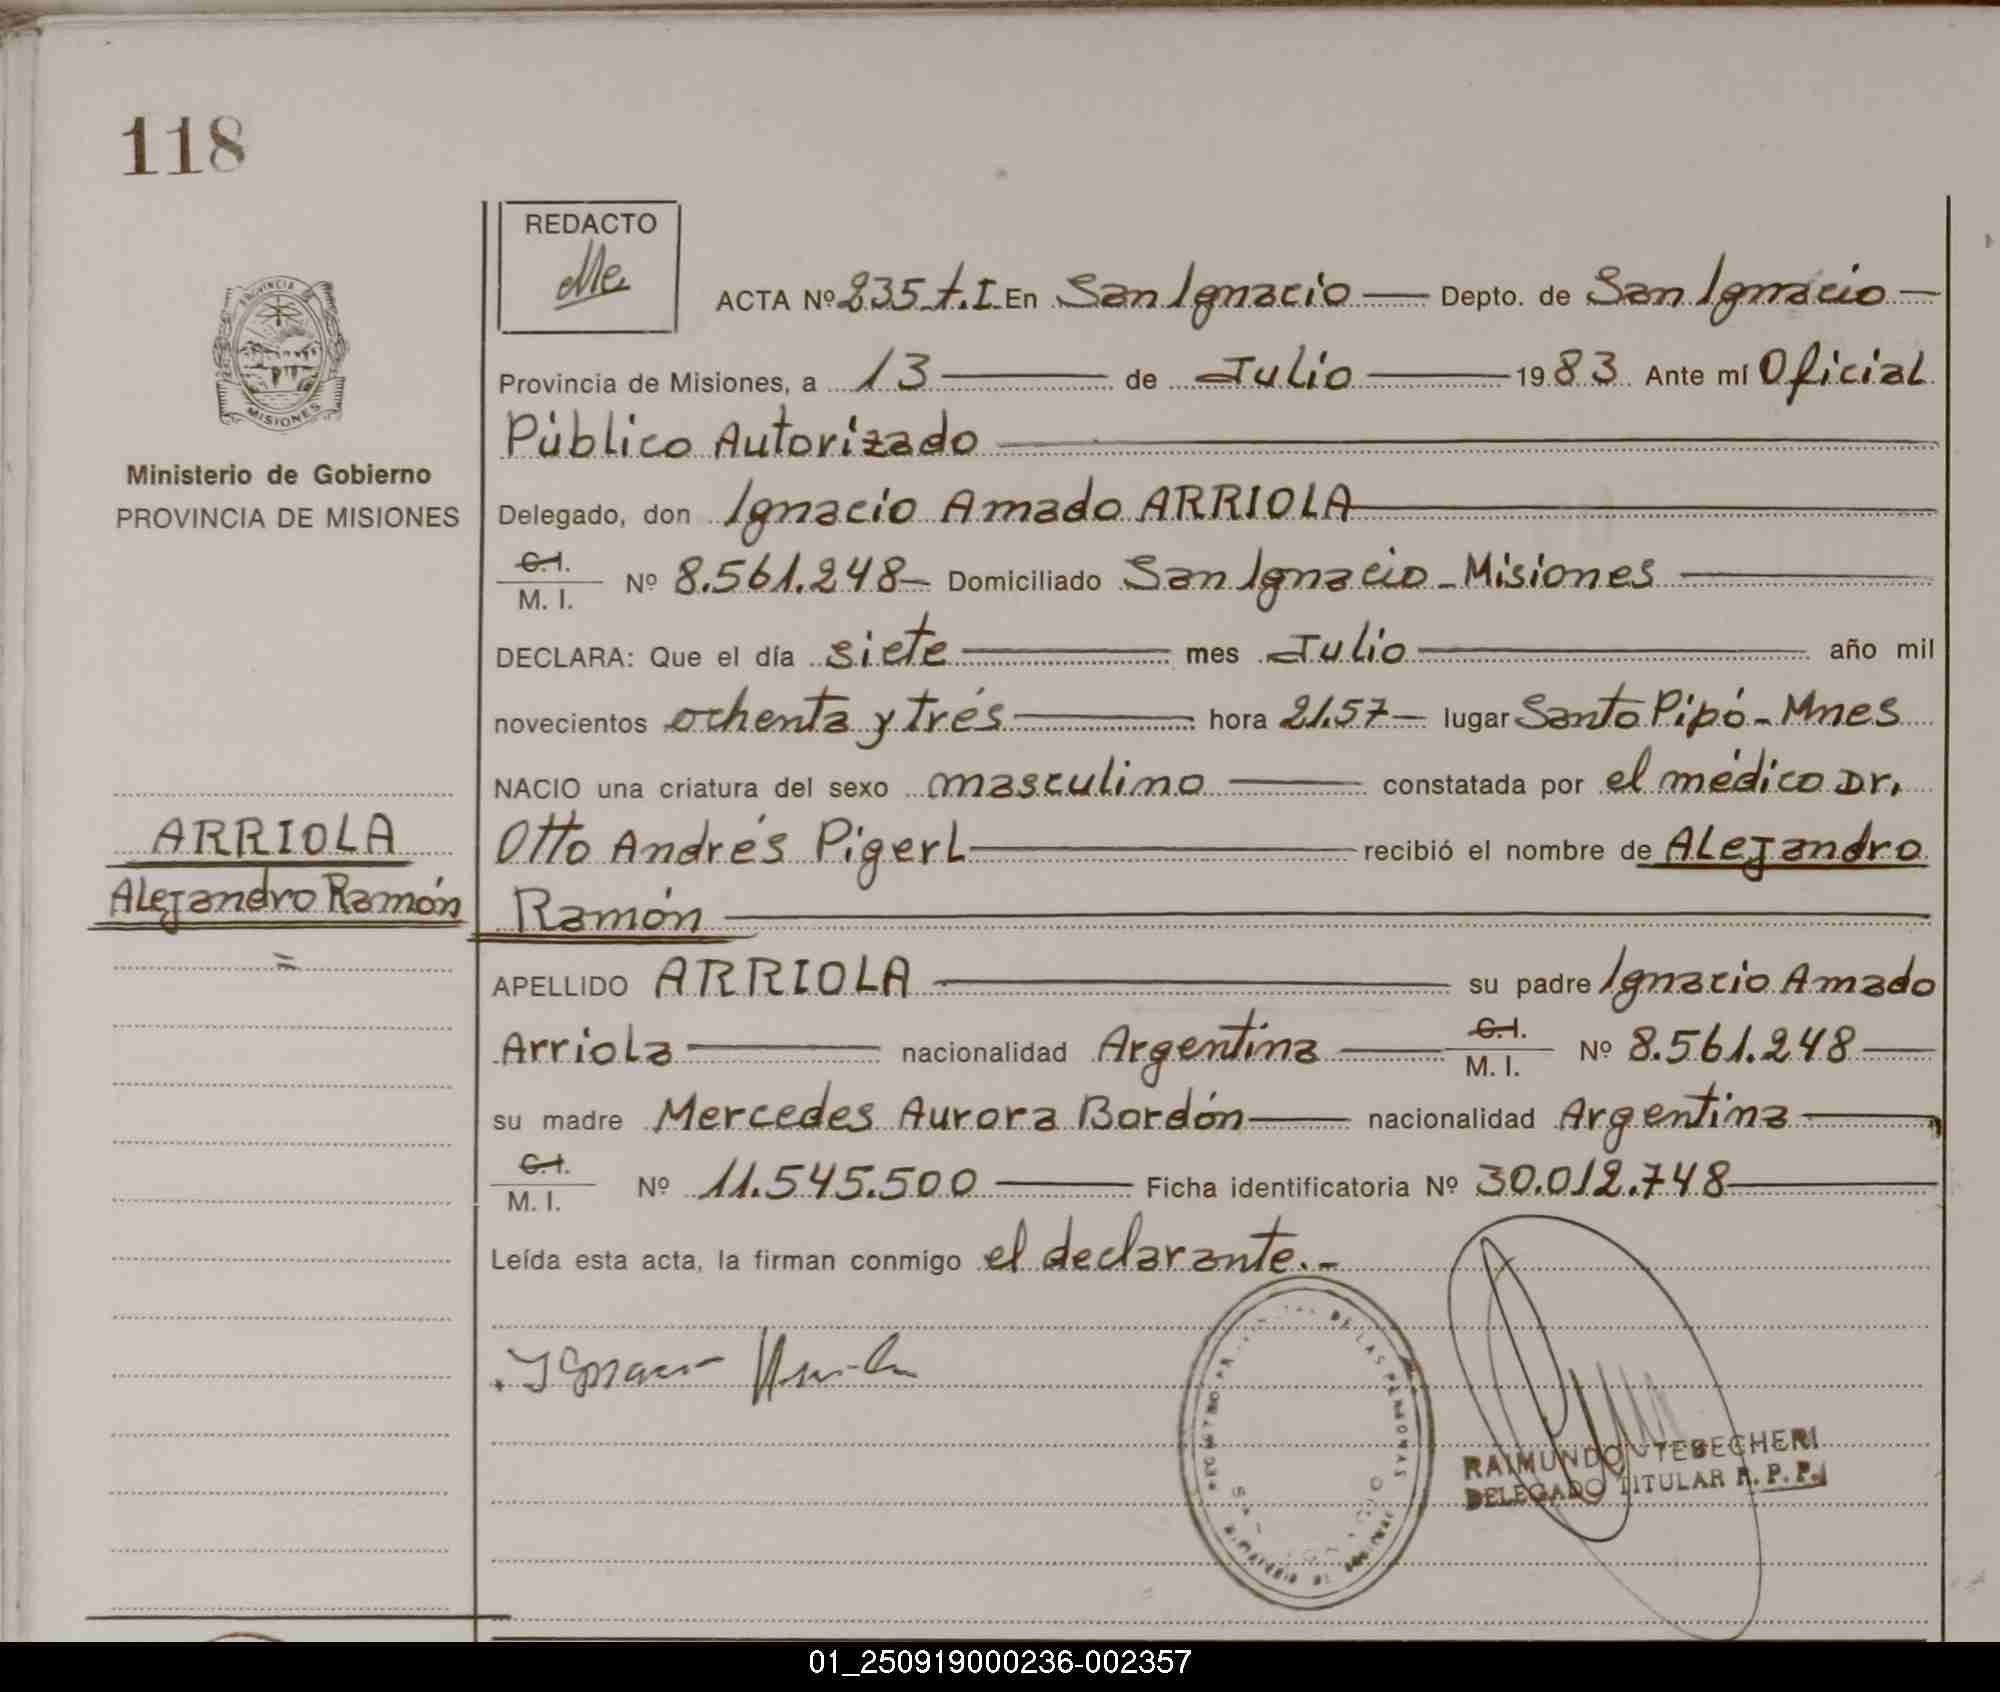 118
REDACTO
ACTA Nº 235 t. I. En San Ignacio Depto. de San Ignacio
Provincia de Misiones, a 13 de Julio 1983 Ante mí Oficial
Público Autorizado
Ministerio de Gobierno
PROVINCIA DE MISIONES
Delegado, don Ignacio Amado ARRIOLA
C.I.
M. I. Nº 8.561.248 Domiciliado San Ignacio - Misiones
DECLARA: Que el día siete mes Julio año mil
novecientos ochenta y trés hora 21.57 lugar Santo Pipó - Mnes
NACIO una criatura del sexo masculino constatada por el médico Dr.
ARRIOLA
Otto Andrés Pigerl recibió el nombre de Alejandro
Alejandro Ramón
Ramón
APELLIDO ARRIOLA su padre Ignacio Amado
Arriola nacionalidad Argentina C.I.
M. I. Nº 8.561.248
su madre Mercedes Aurora Bordón nacionalidad Argentina
C.I.
M. I. Nº 11.545.500 Ficha identificatoria Nº 30.012.748
Leída esta acta, la firman conmigo el declarante.-
DE LAS PERSONAS
RAIMUNDO TEBECHERI
DELEGADO TITULAR R. P. P.
01_250919000236-002357